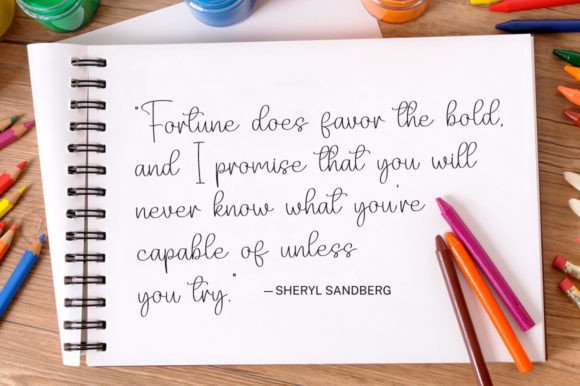 "Fortune does favor the bold,
and I promise that you will
never know what you're
capable of unless
you try."
—SHERYL SANDBERG